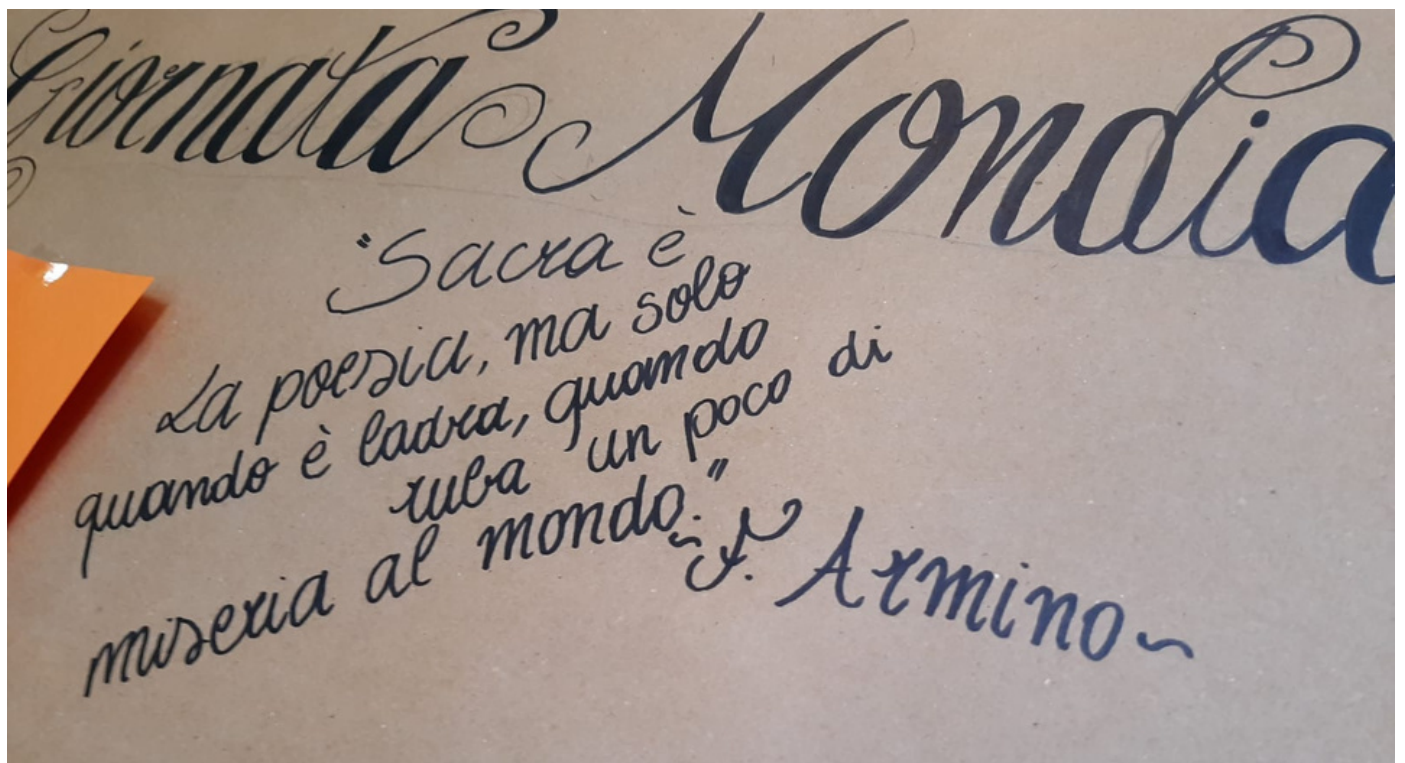 Giornata Mondia
"Sacra è
La poesia, ma solo
quando è ladra, quando
ruba un poco di
miseria al mondo."
~F. Armino~